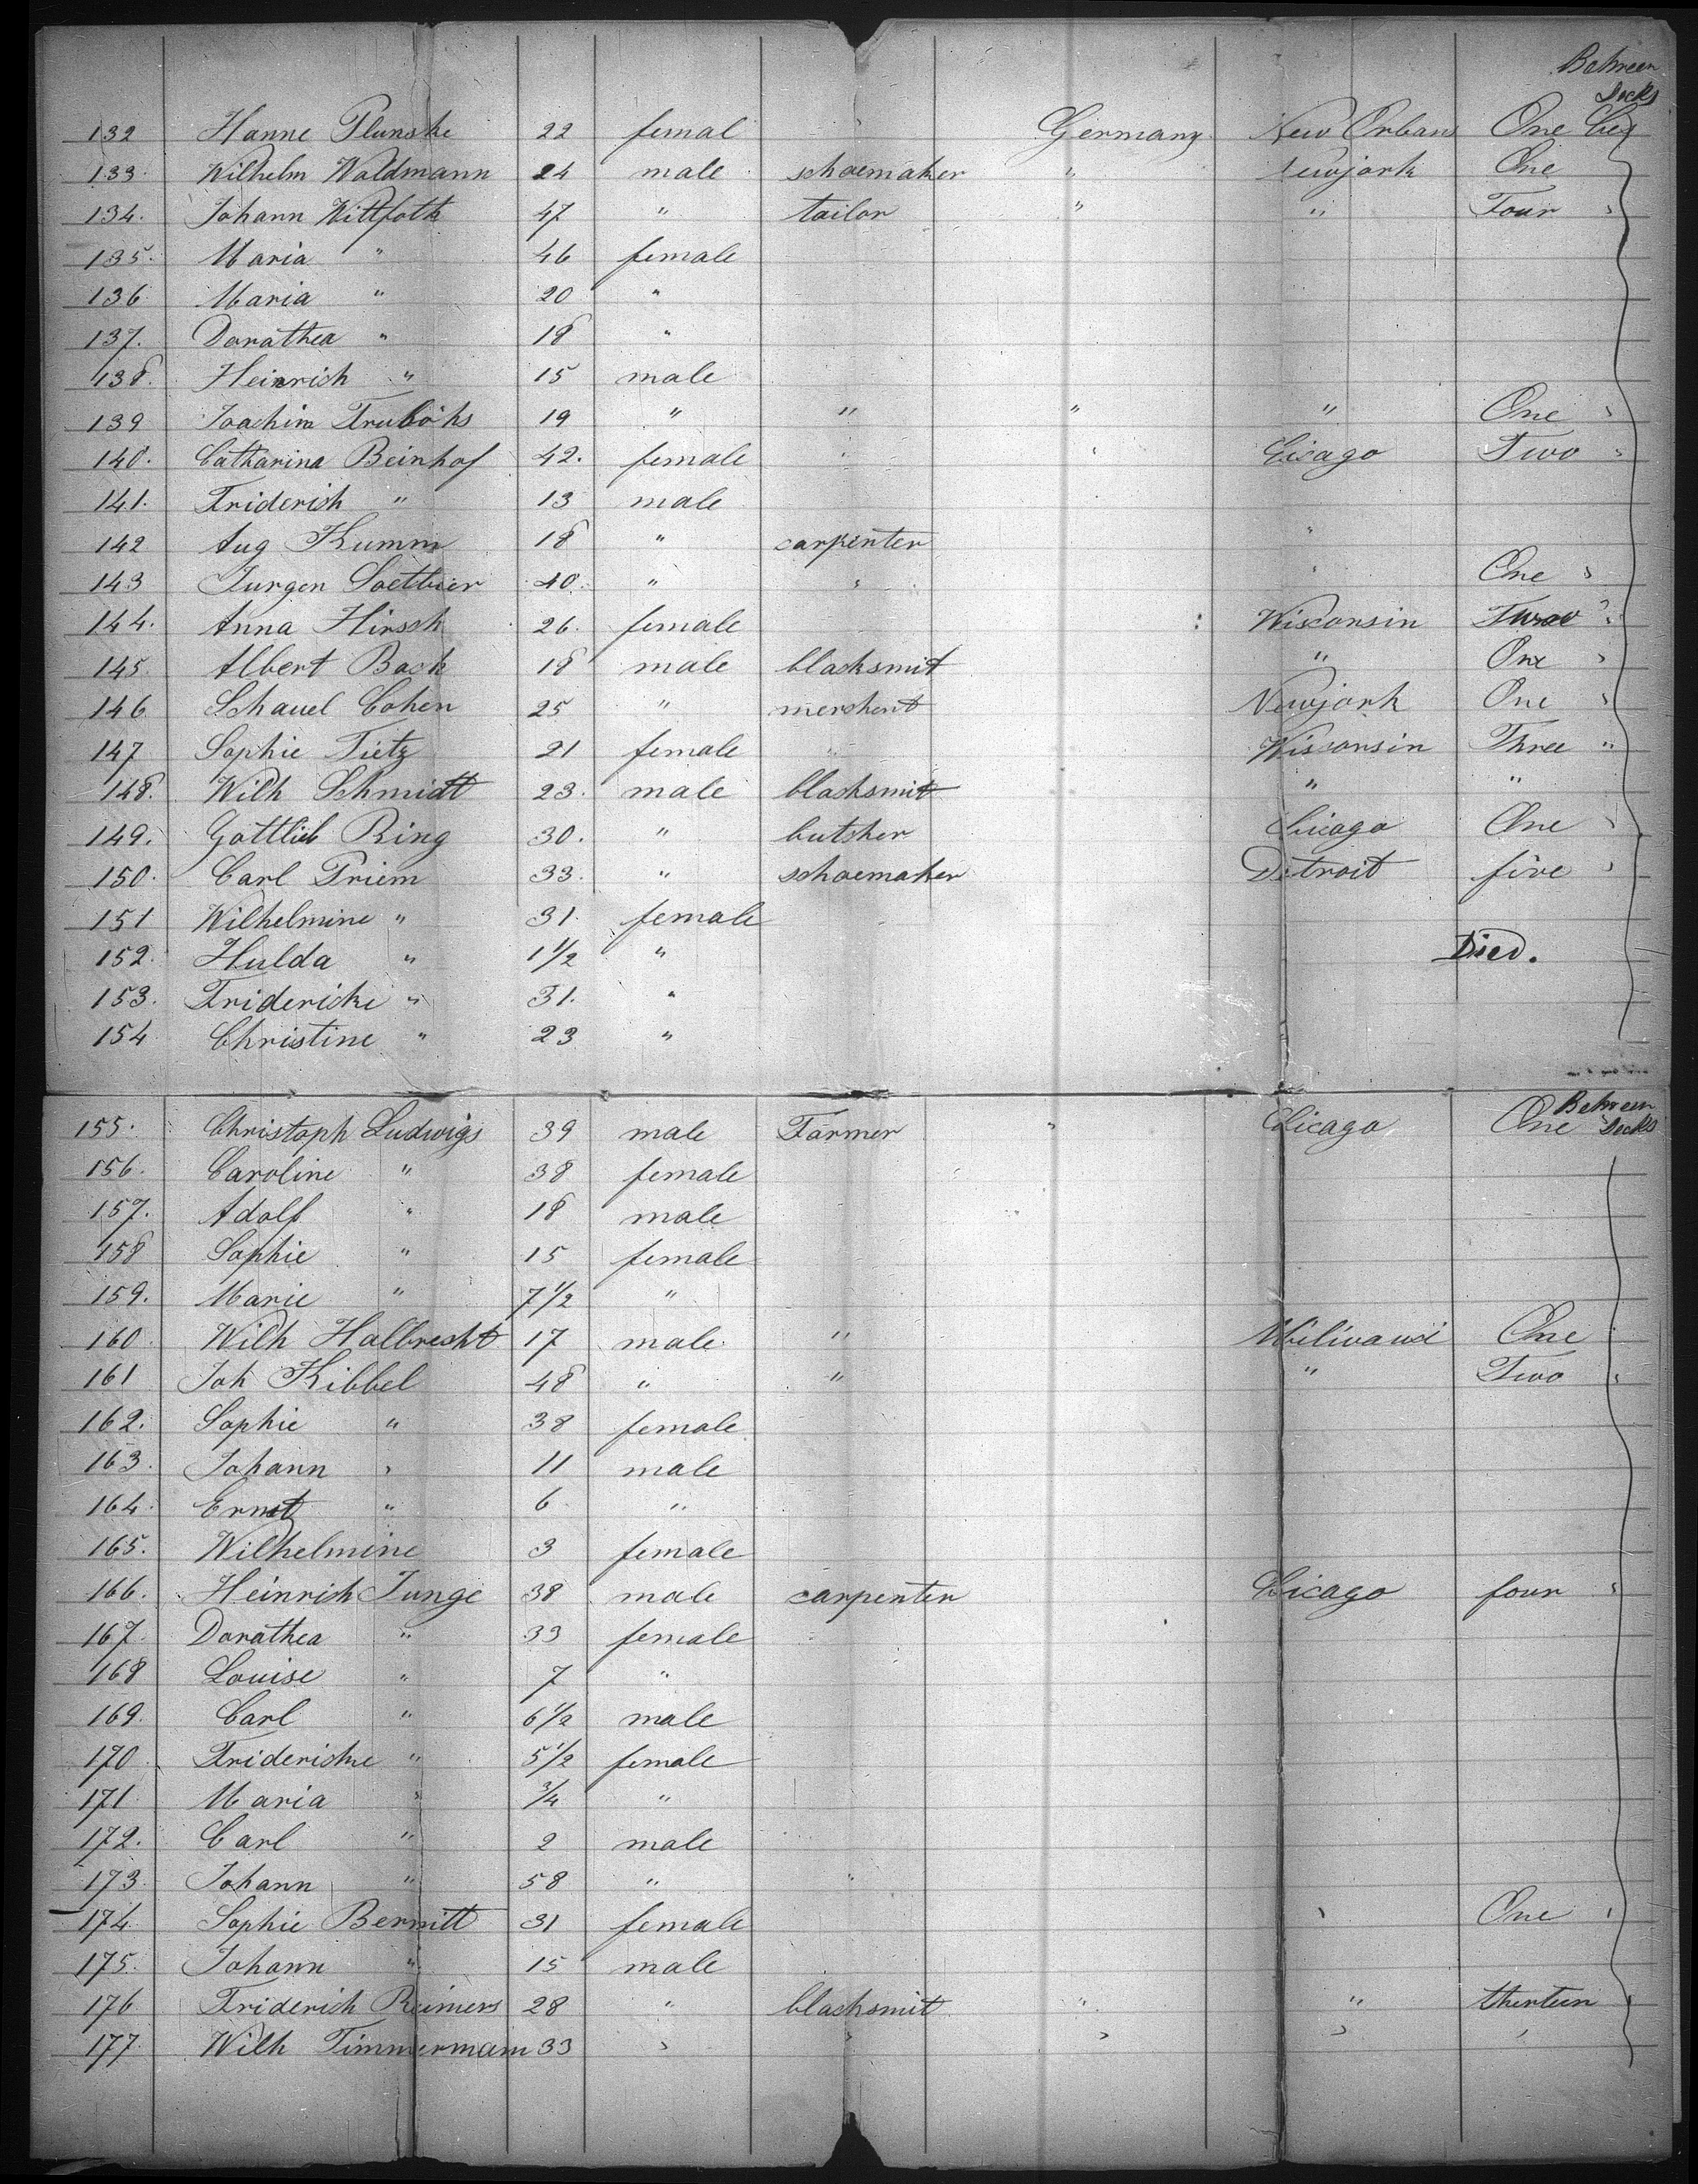 Between
Decks
132 Hanne Plunske 22 femal " Germany New Orlans One
133. Wilhelm Waldmann 24 male schoemaker " Newjork One
134. Johann Wittfoth 47 " tailor " " Four "
135. Maria " 46 female
136 Maria " 20 "
137. Dorathea " 18 "
138. Heinrich " 15 male
139 Joachim 19 " " " " One "
140. Catharina Beinhof 42. female " " Cicago Two "
141. Friderich " 13 male
142 Aug Kumm 18 " carpenter "
143 Jurgen Soettbier 40. " " " One "
144. Anna Hirsch 26. female Wisconsin "
145. Albert Back 18 male blacksmit " One "
146 Schauel Cohen 25 " merchent Newjork One "
147 Sophie Tietz 21 female " Wisconsin Three "
148. Wilh Schmidt 23. male blacksmit " "
149. Gottlieb Ring 30. " butcher Cicago One "
150. Carl Priem 33. " schoemaker Detroit five "
151 Wilhelmine " 31. female
152. Hulda " 1 1/2 " Died.
153. Fridericke " 31. "
154 Christine " 23 "
Between
Decks
155. Christoph Ludwigs 39 male Farmer " Cicago One
156. Caroline " 38 female
157. Adolf " 18 male
158 Sophie " 15 female
159. Marie " 7 1/2 "
160 Wilh Halbrecht 17 male " Miliwauci One "
161 Joh Kibbel 48 " " " Two "
162. Sophie " 38 female
163. Johann " 11 male
164. Ernst " 6 "
165. Wilhelmine 3 female
166. Heinrich Junge 38 male carpenter Cicago four "
167. Dorathea " 33 female
168 Louise " 7 "
169. Carl " 6 1/2 male
170 Friderické " 5 1/2 female
171 Maria " 3/4 "
172. Carl " 2 male
173. Johann " 58 " "
174 Sophie Bernitt 31 female " One "
175. Johann " 15 male
176 Friderich Reimers 28 " blacksmit " " therteen "
177. Wilh Timmermann 33 " " " " "